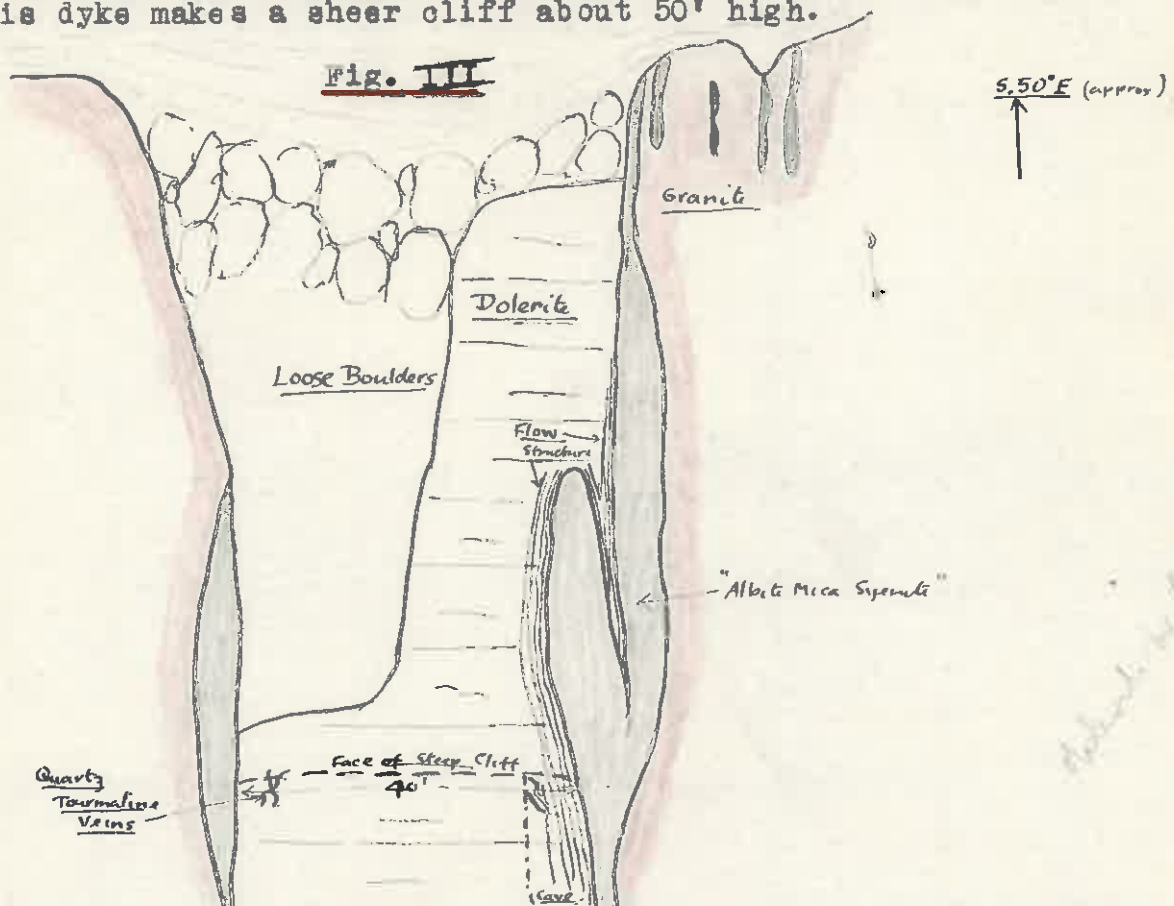 is dyke makes a sheer cliff about 50' high.
Fig. III
S.50°E (approx)
Granite
Dolerite
Loose Boulders
Flow
Structure
"Albite Mica Syenite"
Face of Steep Cliff
40'
Quartz
Tourmaline
Veins
Cave